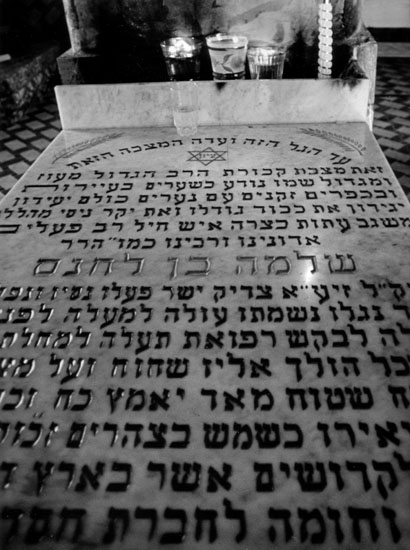 עד הגל הזה ועדה המצבה הזאת
ציון
זאת מצבת קבורת הרב הגדול מעוז
ומגדול שמו נודע בשערים בעיירות
ובכפרים זקנים עם נערים כולם יעידון
יגידון את כבוד גודלו זאת יקר ניסי מהללי
משגב עתות בצרה איש חיל רב פעלים
אדונינו ורבינו כמו״הרר
שלמה בן לחנס
זקל״ל זיע״א צדיק ישר פעלו נסיו ונפ
נגלו נשמתו עולה למעלה לפני
לה לבקש רפואת תעלה למחלת
כל הולך אליו שחוח ועל מצ
שטוח מאד יאמץ כח
יאירו כשמש בצהרים
לקדושים אשר בארץ
וחומה לחברת חסד